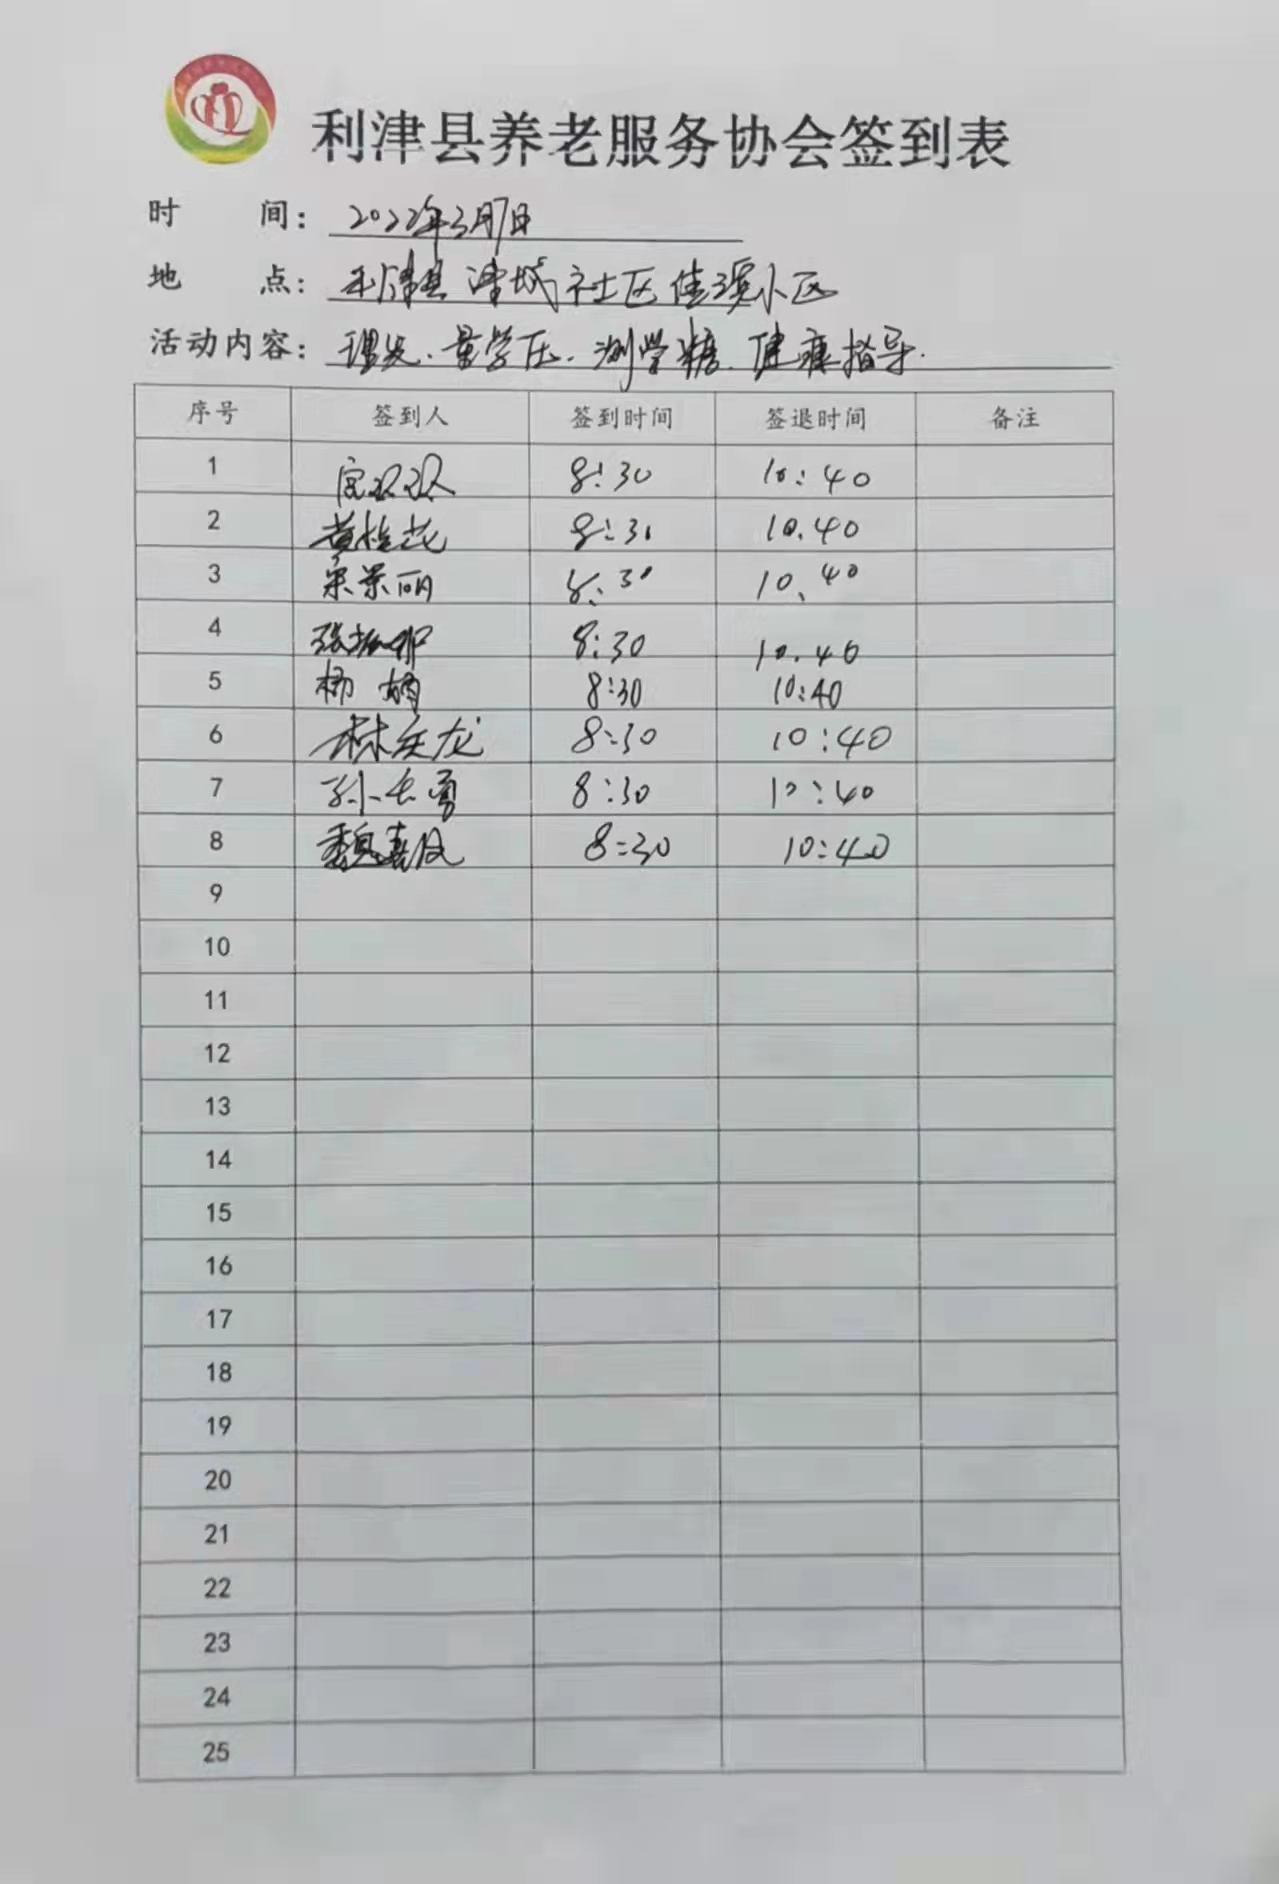 利津县养老服务协会签到表
时 间：2022年3月7日
地 点：利津县津城社区佳源小区
活动内容：理发、量学压、测学糖、健康指导.
序号 签到人 签到时间 签退时间 备注
1 双双 8:30 10:40
2 黄桂花 8:30 10.40
3 宋景丽 8:30 10.40
4 张 8:30 10.40
5 杨娟 8:30 10:40
6 林庆龙 8:30 10:40
7 孙长勇 8:30 10:40
8 魏嘉 8:30 10:40
9
10
11
12
13
14
15
16
17
18
19
20
21
22
23
24
25